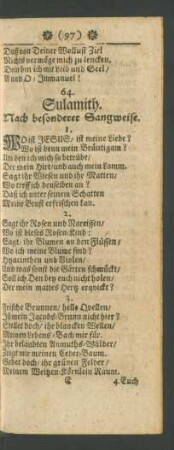 (97)
Daß von Deiner Wollust Ziel
Nichts vermöge mich zu lencken,
Dem bin ich mit Leib und Seel/
O Immanuel!
64.
Sulamith.
Nach besonderer Sangweise.
1.
WO ist JESUS/ ist meine Liebe?
Wo ist denn mein Bräutigam?
An den ich mich so betrübe/
Der mein Hirt/und auch mein Lamm.
Sagt ihr Wiesen und ihr Matten/
Wo treff ich denselben an?
Daß ich unter seinem Schatten
Meine Brust erfrischen kan.
2.
Sagt ihr Rosen und Narcissen/
Wo ist dieses Rosen-Kind:
Sagt ihr Blumen an den Flüssen/
Wo ich meine Blume find?
Hyacinthen und Violen/
Und was sonst die Gärten schmückt/
Soll ich Den bey euch nicht holen/
Der mein mattes Hertz erquickt?
3.
Frische Brunnen/ helle Quellen/
Ist mein Jacobs-Brunn nicht hier?
Stellet doch/ ihr blancken Wellen/
Meinen Lebens-Bach mir für.
Ihr belaubten Anmuths-Wälder/
Zeigt mir meinen Ceder-Baum.
Gebet doch/ ihr grünen Felder/
Meinem Weitzen-Körnlein Raum.
4. Euch